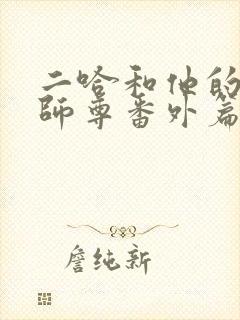 二哈和他的
師尊番外篇
詹纯新